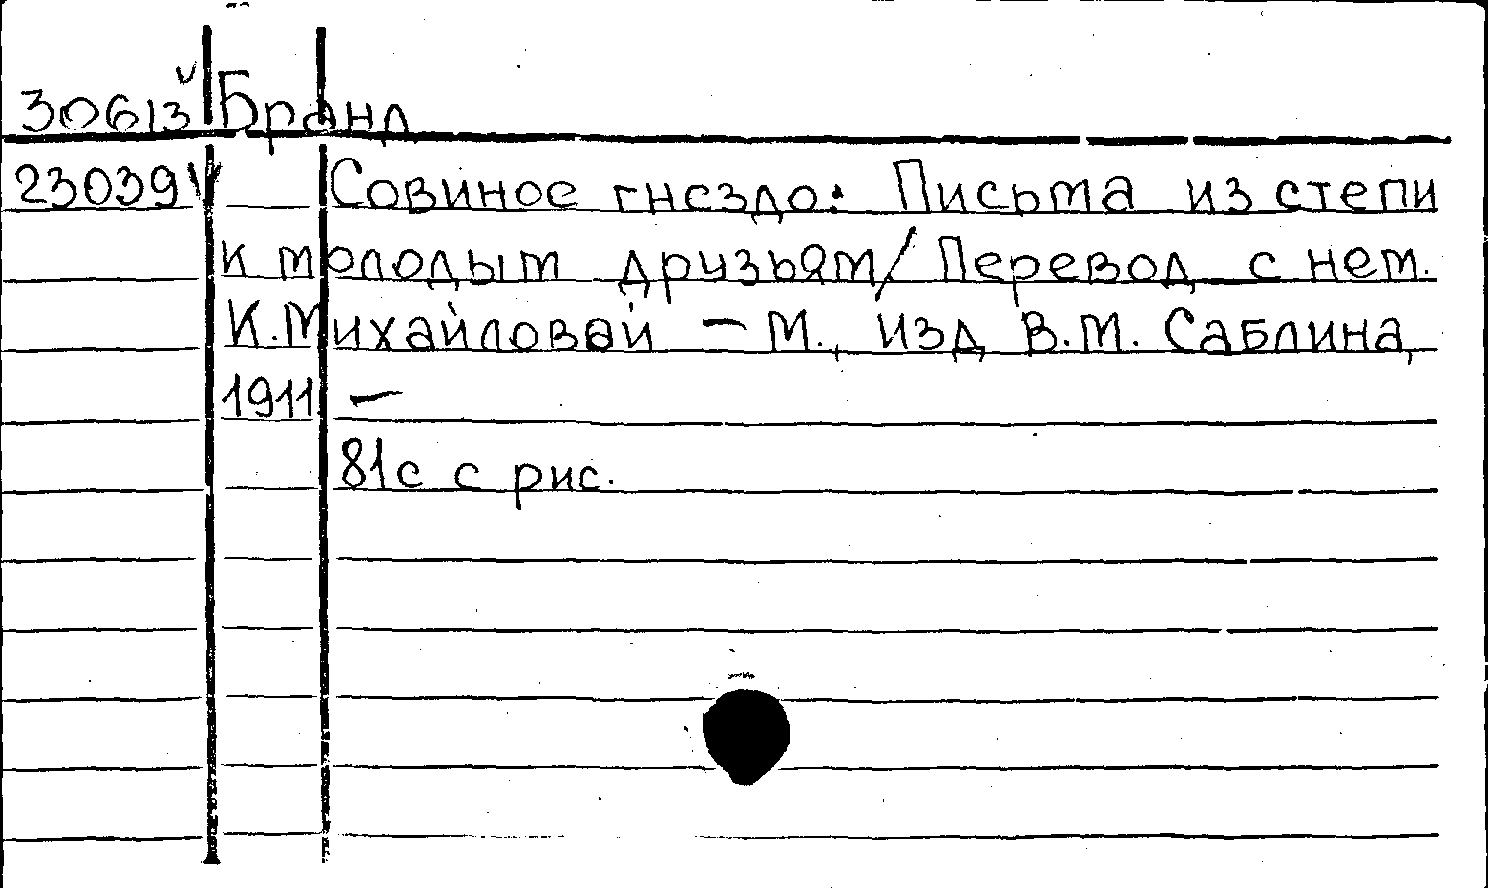 30613 v Бранд
23039 v Совиное гнездо: Письма из степи
к молодым друзьям/Перевод с нем.
К.Михайловой — М., изд В.М. Саблина,
1911 —
81с с рис.